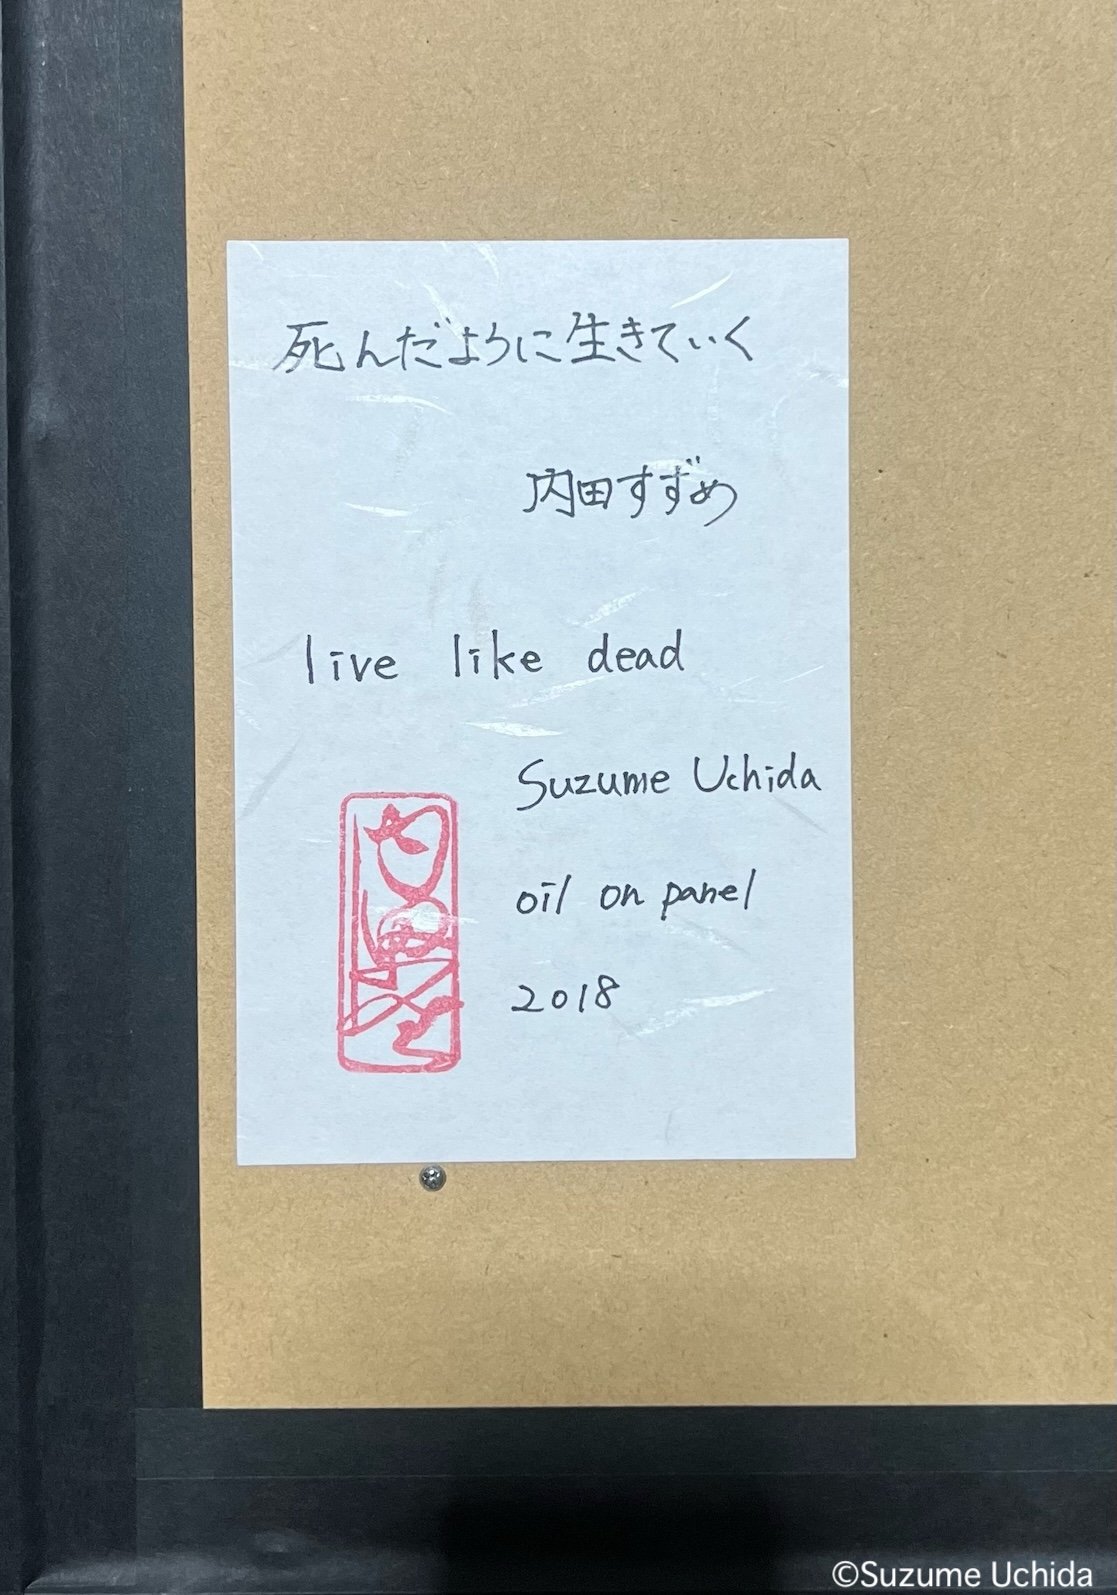 死んだように生きていく
内田すずめ
live like dead
Suzume Uchida
oil on panel
2018
©Suzume Uchida